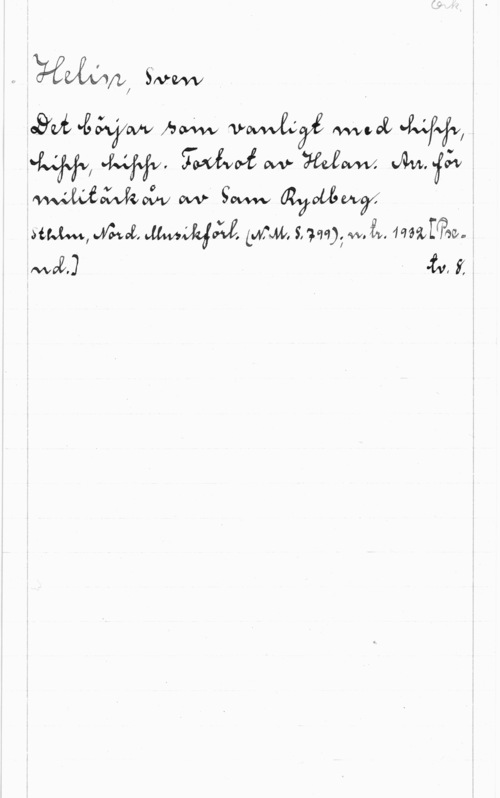 Ork.
Helin, Sven
Det börjar som vanligt med hipp,
hipp, hipp. Foxtrot av Helan. Arr. för
militärkår av Sam Rydberg.
Sthlm, Nord. Musikförl. (N.M.S. 799); n. tr. 1932 [Pae-
nd.] tv. 8.